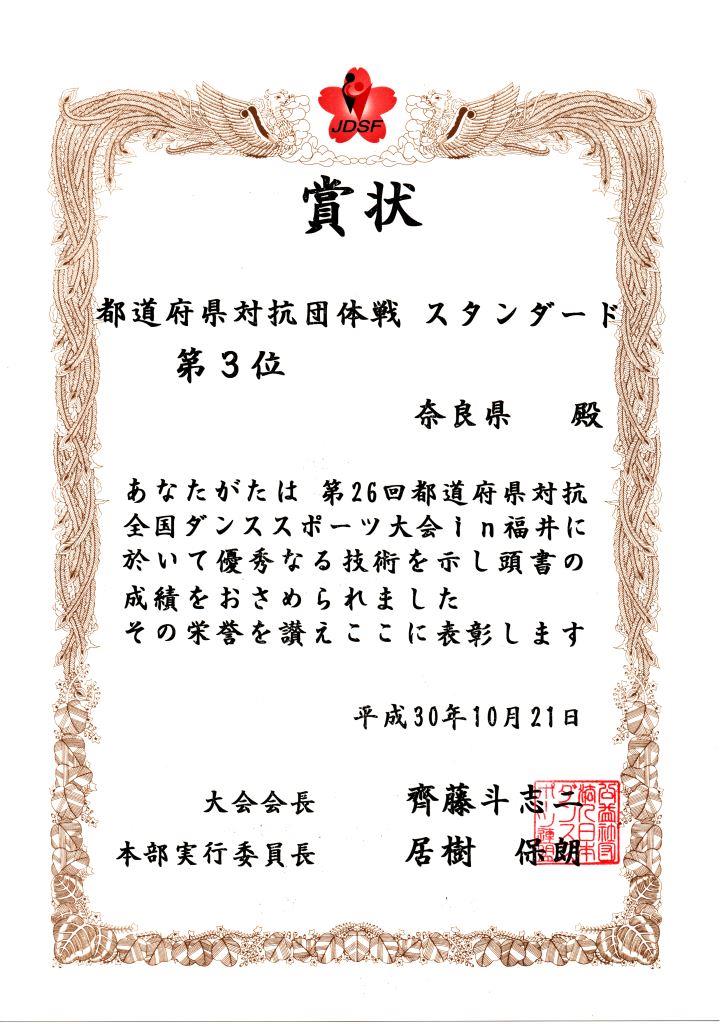 JDSF
賞状
都道府県対抗団体戦 スタンダード
第３位
奈良県 殿
あなたがたは 第26回都道府県対抗
全国ダンススポーツ大会ｉｎ福井に
於いて優秀なる技術を示し頭書の
成績をおさめられました
その栄誉を讃えここに表彰します
平成30年10月21日
大会会長 齊藤斗志二
本部実行委員長 居樹 保朗